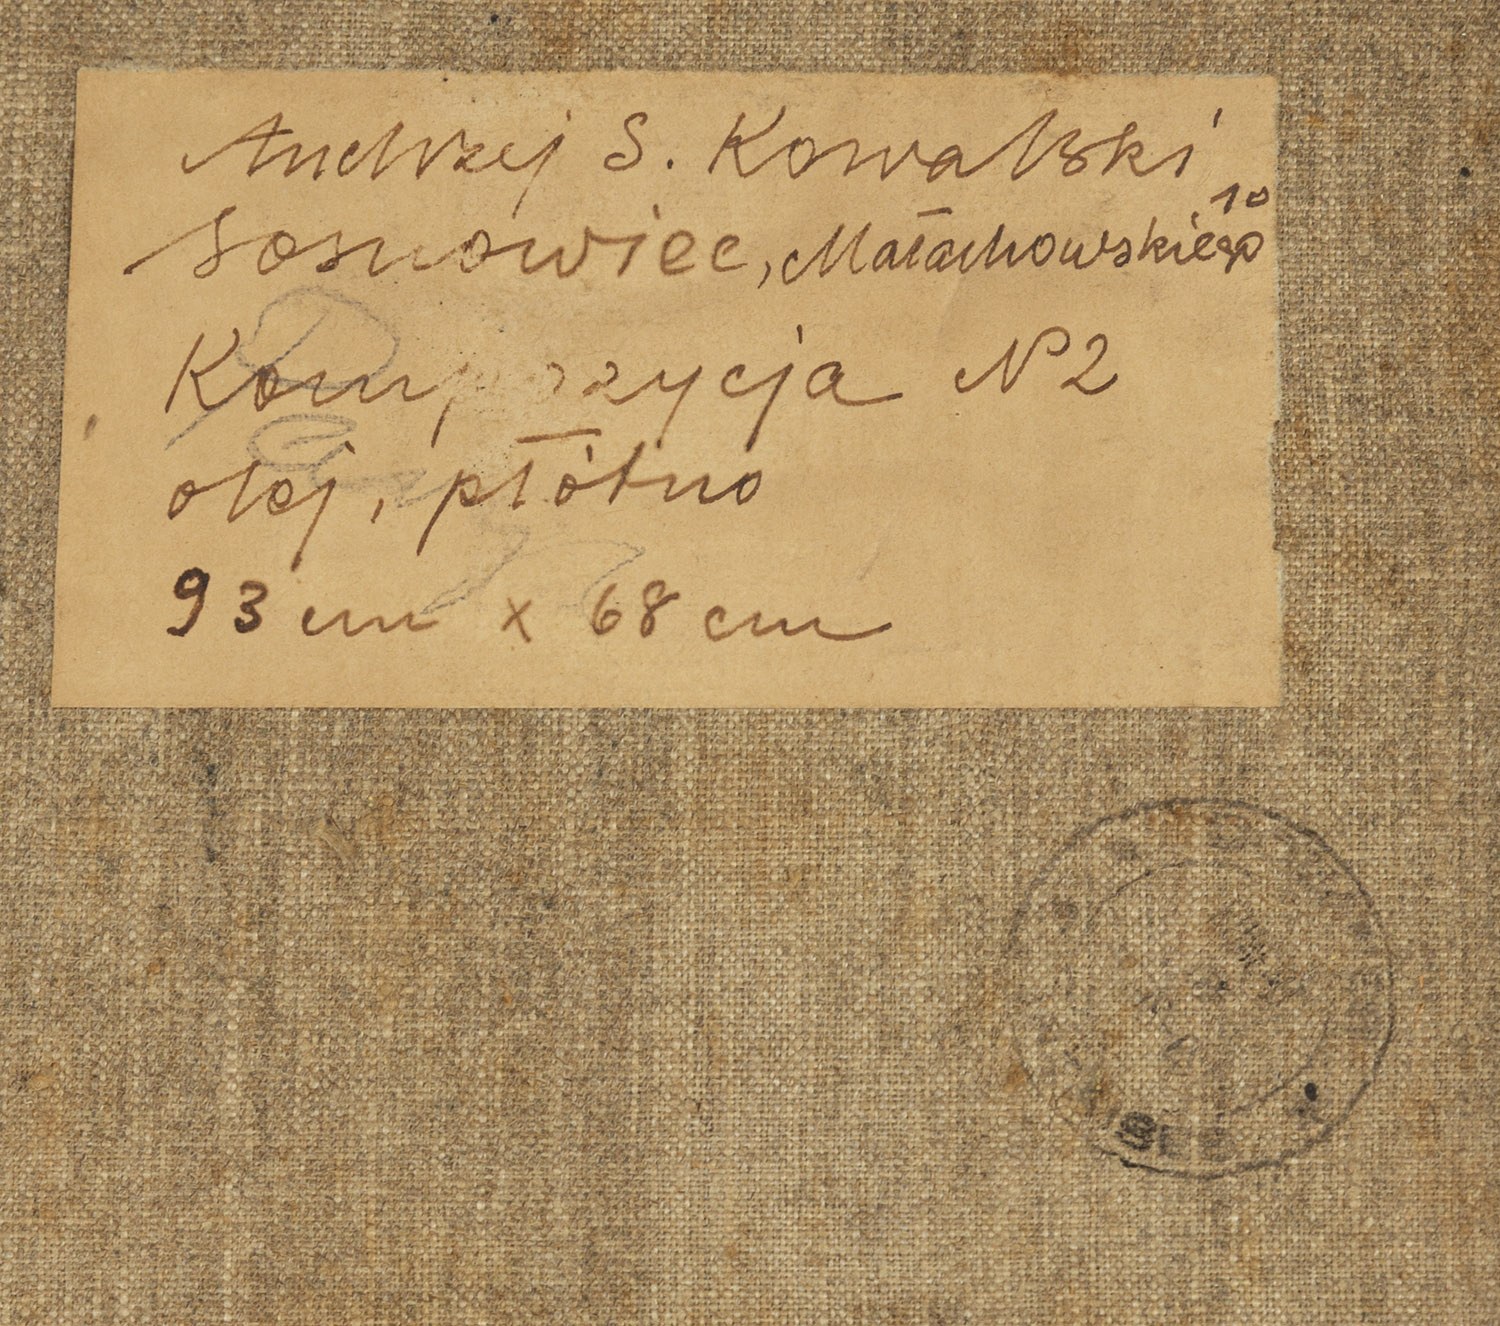 Andrzej S. Kowalski
Sosnowiec, Małachowskiego 10
Kompozycja N2
olej, płótno
93 cm x 68 cm